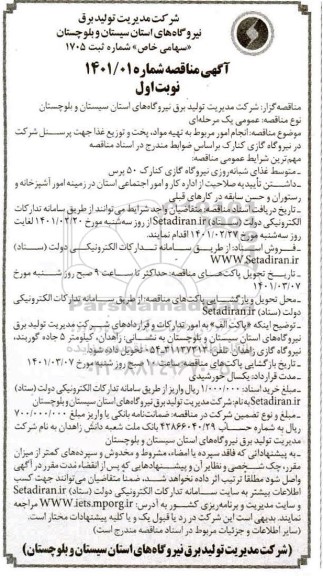 شرکت مدیریت تولید برق
نیروگاه‌های استان سیستان و بلوچستان
«سهامی خاص» شماره ثبت ۱۷۰۵
آگهی مناقصه شماره ۱۴۰۱/۰۱
نوبت اول
مناقصه‌گزار: شرکت مدیریت تولید برق نیروگاه‌های استان سیستان و بلوچستان
نوع مناقصه: عمومی یک مرحله‌ای
موضوع مناقصه: انجام امور مربوط به تهیه مواد، پخت و توزیع غذا جهت پرسنل شرکت
در نیروگاه گازی کنارک براساس ضوابط مندرج در اسناد مناقصه
مهم‌ترین شرایط عمومی مناقصه:
ـ متوسط غذای شبانه‌روزی نیروگاه گازی کنارک ۵۰ پرس
ـ داشتن تأییدیه صلاحیت از اداره کار و امور اجتماعی استان در زمینه امور آشپزخانه و
رستوران و حسن سابقه در کارهای قبلی
ـ تاریخ دریافت اسناد مناقصه: متقاضیان واجد شرایط می‌توانند از طریق سامانه تدارکات
الکترونیکی دولت (ستاد) Setadiran.ir از روز سه‌شنبه مورخ ۱۴۰۱/۰۲/۲۰ لغایت
روز سه‌شنبه مورخ ۱۴۰۱/۰۲/۲۷ اقدام نمایند.
ـ فروش اسناد: از طریق سامانه تدارکات الکترونیکی دولت (ستاد)
WWW.Setadiran.ir
ـ تاریخ تحویل پاکت‌های مناقصه: حداکثر تا ساعت ۹ صبح روز شنبه مورخ
۱۴۰۱/۰۳/۰۷
ـ محل تحویل و بازگشایی پاکت‌های مناقصه: از طریق سامانه تدارکات الکترونیکی
دولت (ستاد) Setadiran.ir
ـ توضیح اینکه «پاکت الف» به امور تدارکات و قراردادهای شرکت مدیریت تولید برق
نیروگاه‌های استان سیستان و بلوچستان به نشانی: زاهدان، کیلومتر ۵ جاده گوربند،
نیروگاه گازی زاهدان تلفن: ۳۱۱۳۷۳۱۳-۰۵۴ تحویل داده شود.
ـ تاریخ بازگشایی پاکت‌های مناقصه: ساعت ۱۰ صبح روز شنبه مورخ ۱۴۰۱/۰۳/۰۷
ـ مدت قرارداد: یکسال خورشیدی
ـ مبلغ خرید اسناد: ۱/۰۰۰/۰۰۰ ریال واریز از طریق سامانه تدارکات الکترونیکی دولت (ستاد)
Setadiran.ir به نام: شرکت مدیریت تولید برق نیروگاه‌های استان سیستان و بلوچستان
ـ مبلغ و نوع تضمین شرکت در مناقصه: ضمانت‌نامه بانکی یا واریز مبلغ ۷۰۰/۰۰۰/۰۰۰
ریال به شماره حساب ۴۲۸۶۶۰۴۰/۲۹ بانک ملت شعبه دانش زاهدان به نام شرکت
مدیریت تولید برق نیروگاه‌های استان سیستان و بلوچستان
ـ به پیشنهاداتی که فاقد سپرده یا امضاء، مشروط و مخدوش و سپرده‌های کمتر از میزان
مقرر، چک شخصی و نظایر آن و پیشنهادهایی که پس از انقضاء مدت مقرر در آگهی
واصل شود مطلقا ترتیب اثر داده نخواهد شد، ضمنا متقاضیان می‌توانند جهت کسب
اطلاعات بیشتر به سایت سامانه تدارکات الکترونیکی دولت (ستاد) Setadiran.ir
و سایت مدیریت و برنامه‌ریزی کشور به آدرس: WWW.iets.mporg.ir مراجعه
نمایند. بدیهی است این شرکت در رد یا قبول یک و یا کلیه پیشنهادات مختار است.
(سایر اطلاعات و جزئیات مربوط در اسناد مناقصه مندرج است)
(شرکت مدیریت تولید برق نیروگاه‌های استان سیستان و بلوچستان)